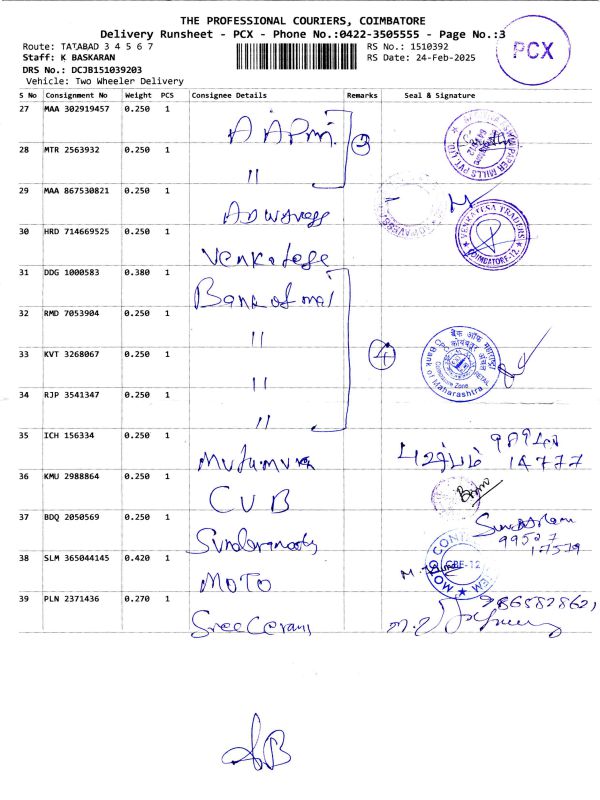 THE PROFESSIONAL COURIERS, COIMBATORE
Delivery Runsheet - PCX - Phone No.:0422-3505555 - Page No.:3
Route: TATABAD 3 4 5 6 7
RS No.: 1510392
PCX
Staff: K BASKARAN
RS Date: 24-Feb-2025
DRS No.: DCJB151039203
Vehicle: Two Wheeler Delivery
S No Consignment No Weight PCS Consignee Details Remarks Seal & Signature
27 MAA 302919457 0.250 1
28 MTR 2563932 0.250 1 "
3
29 MAA 867530821 0.250 1
30 HRD 714669525 0.250 1 Venkatesa
VENKATESA TRADERS
COIMBATORE-12
31 DDG 1000583 0.380 1 Bank of mah
32 RMD 7053904 0.250 1 "
33 KVT 3268067 0.250 1 "
4
बैंक ऑफ महाराष्ट्र
Bank of Maharashtra
34 RJP 3541347 0.250 1 "
35 ICH 156334 0.250 1
14777
36 KMU 2988864 0.250 1 CUB
37 BDQ 2050569 0.250 1
99527
17579
38 SLM 365044145 0.420 1 MOTO
CBE-12
39 PLN 2371436 0.270 1